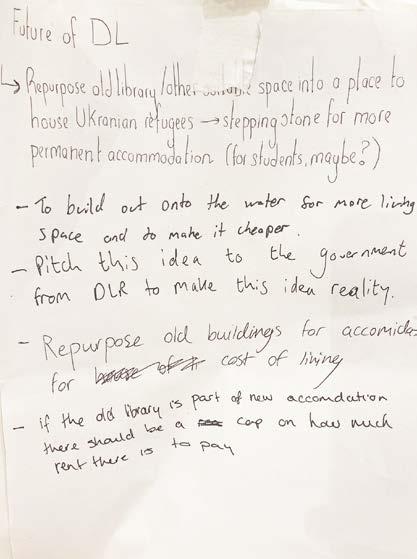 Future of DL
↳ Repurpose old library/other space into a place to
house Ukranian refugees → stepping stone for more
permanent accommodation (for students, maybe?)
- To build out onto the water for more living
space and do make it cheaper.
- Pitch this idea to the government
from DLR to make this idea reality.
- Repurpose old buildings for accomida
for cost of living
- if the old library is part of new accomdation
there should be a cap on how much
rent there is to pay